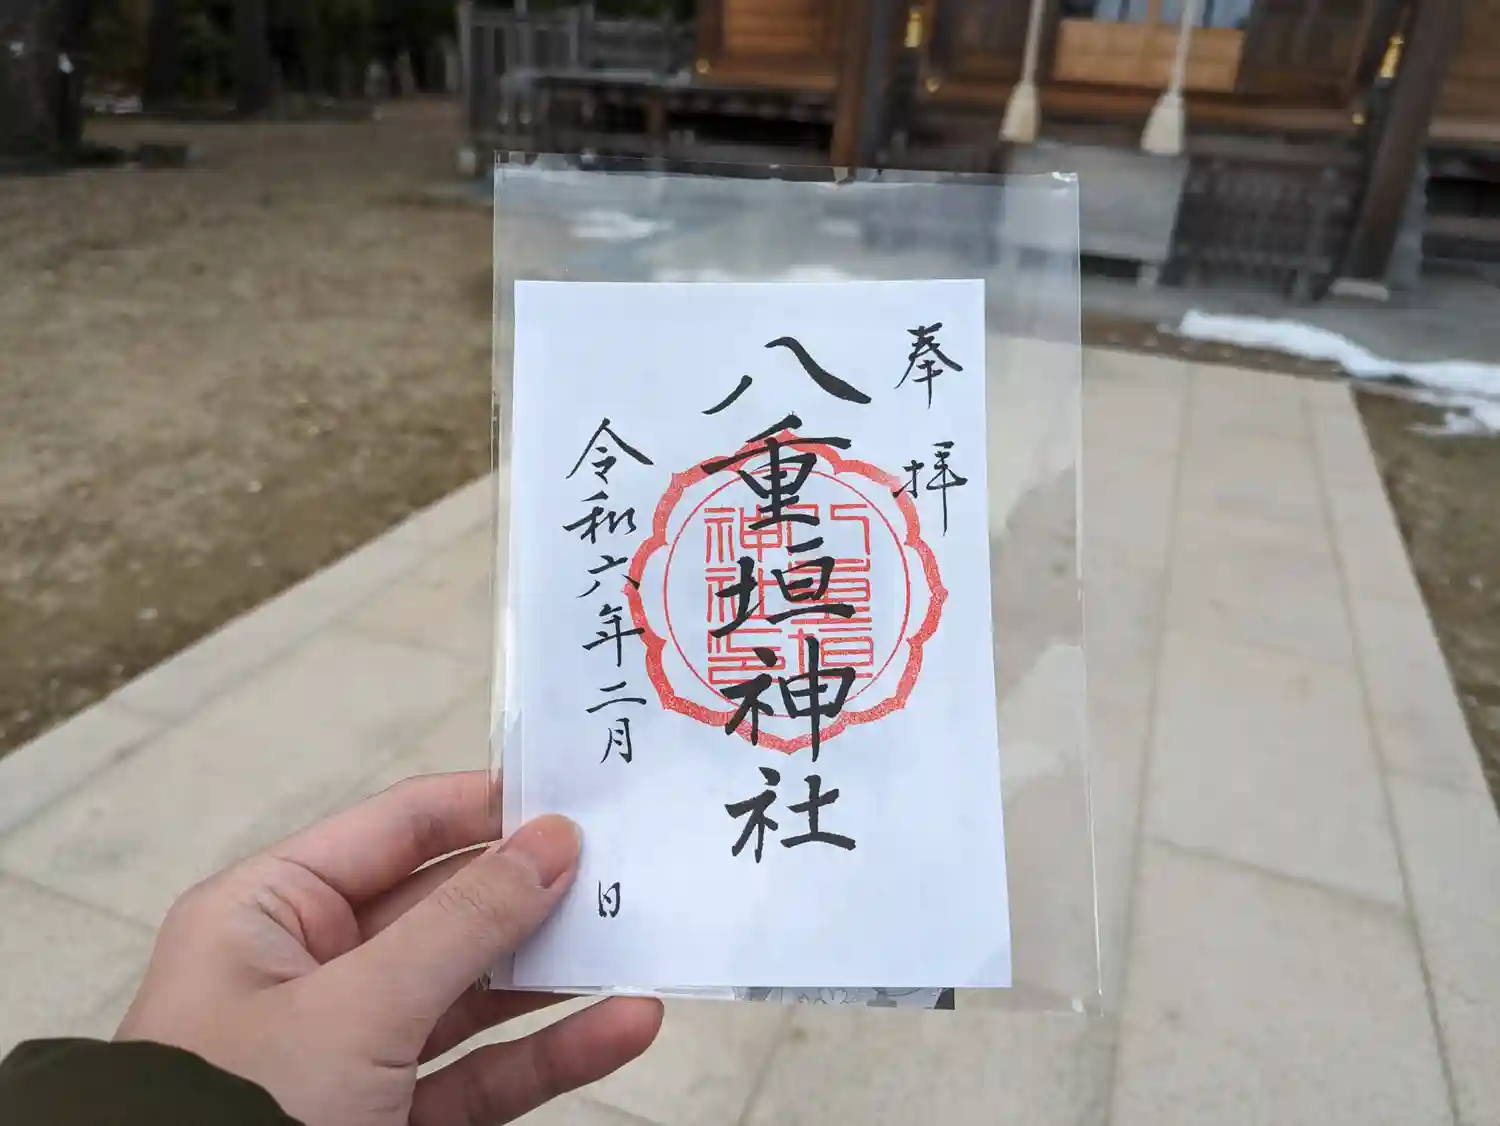 奉拝
八重垣神社
八重垣
神社之印
令和六年二月 日